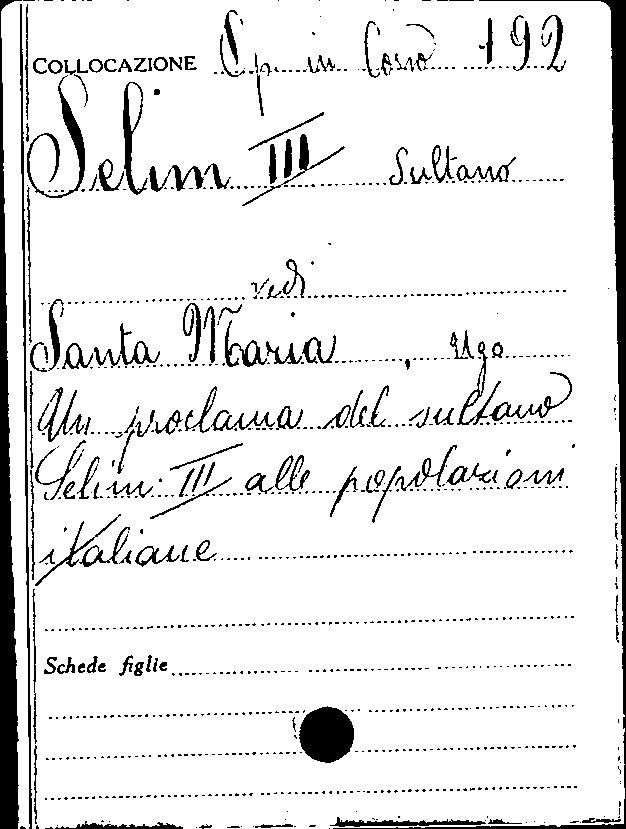 COLLOCAZIONE Op. in Corso 192
Selim III Sultano
vedi
Santa Maria, Ugo
Un proclama del sultano
Selim III alle popolazioni
italiane
Schede figlie